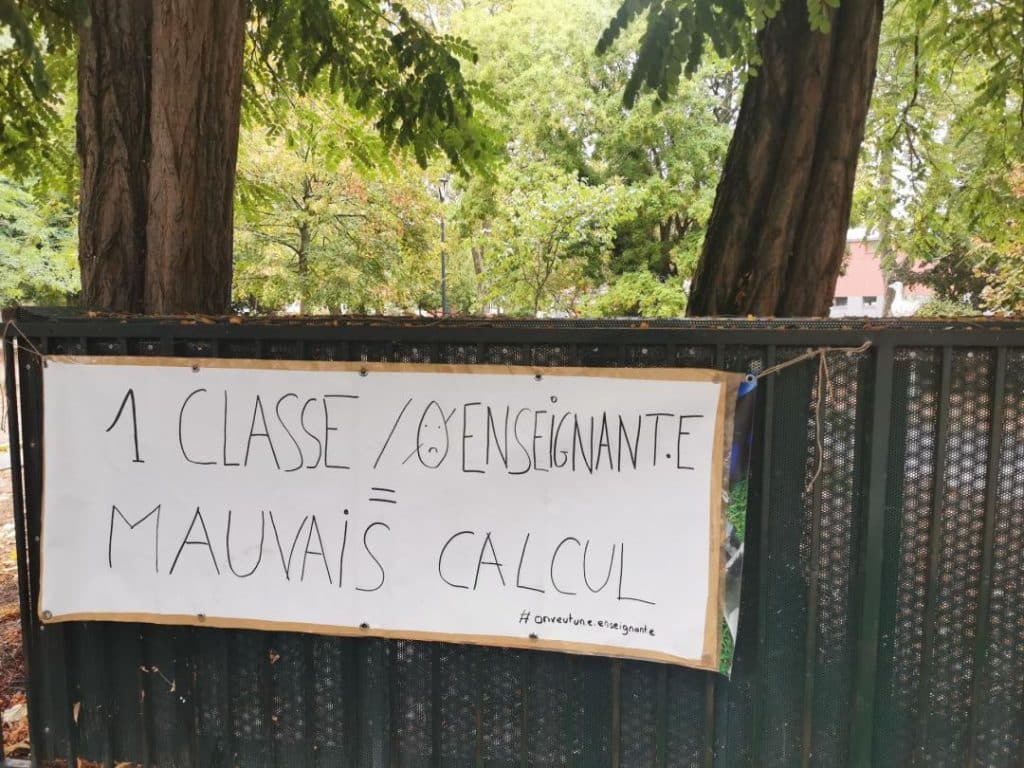 1 CLASSE / 0 ENSEIGNANT.E
=
MAUVAIS CALCUL
#onveutun.e.enseignante